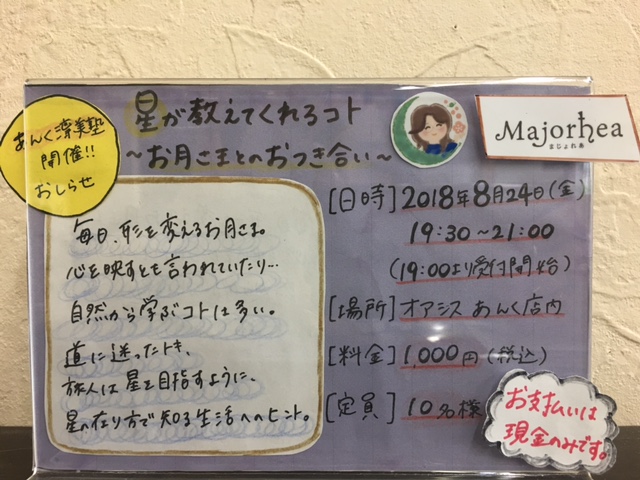 あんく淳美塾
開催!!
おしらせ
星が教えてくれるコト
~お月さまとのおつき合い~
Majorhea
まじょれあ
毎日、形を変えるお月さま。
心を映すとも言われていたり…
自然から学ぶコトは多い。
道に迷ったトキ、
旅人は星を目指すように、
星の在り方で知る生活へのヒント。
[日時] 2018年8月24日(金)
19:30~21:00
(19:00より受付開始)
[場所] オアシス あんく店内
[料金] 1,000円(税込)
[定員] 10名様
お支払いは
現金のみです。